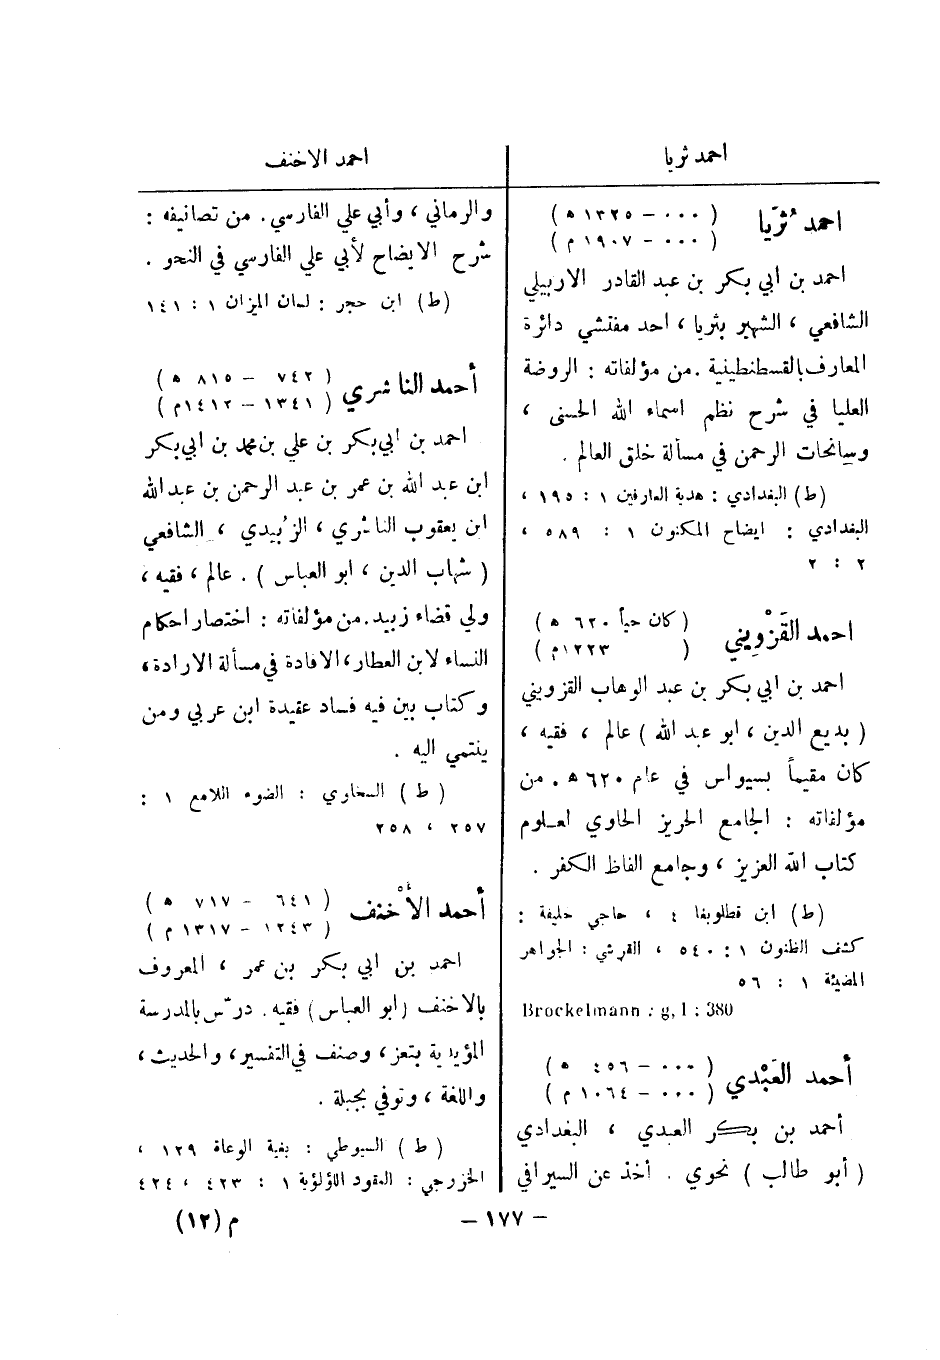 احمد ثريا
احمد ثُريّا
( ٠٠٠ – ١٣٢٥ ه )
( ٠٠٠ – ١٩٠٧ م )
احمد بن ابي بكر بن عبد القادر الاربيلي
الشافعي ، الشهير بثريا ، احد مفتشي دائرة
المعارف بالقسطنطينية . من مؤلفاته : الروضة
العليا في شرح نظم اسماء الله الحسنى ،
وسانحات الرحمن في مسألة خلق العالم .
(ط) البغدادي : هدية العارفين ١ : ١٩٥ ،
البغدادي : ايضاح المكنون ١ : ٥٨٩ ،
٢ : ٢
احمد القَزْوِيني
( كان حياً ٦٢٠ ه )
( ١٢٢٣م )
احمد بن ابي بكر بن عبد الوهاب القزويني
( بديع الدين ، ابو عبد الله ) عالم ، فقيه ،
كان مقيماً بسيواس في عام ٦٢٠ ه . من
مؤلفاته : الجامع الحريز الحاوي لعلوم
كتاب الله العزيز ، وجامع الفاظ الكفر .
(ط) ابن قطلوبغا ٤ ، حاجي خليفة :
كشف الظنون ١ : ٥٤٠ ، القرشي : الجواهر
المضيئة ١ : ٥٦
Brockelmann : g, I : 380
أحمد العَبْدي
( ٠٠٠ – ٤٥٦ ه )
( ٠٠٠ – ١٠٦٤ م )
أحمد بن بكر العبدي ، البغدادي
( أبو طالب ) نحوي . أخذ عن السيرافي
احمد الاخنف
والرماني ، وأبي علي الفارسي . من تصانيفه :
شرح الايضاح لأبي علي الفارسي في النحو .
(ط) ابن حجر : لسان الميزان ١ : ١٤١
أحمد الناشري
( ٧٤٢ – ٨١٥ ه )
( ١٣٤١ – ١٤١٢م )
احمد بن ابي بكر بن علي بن محمد بن ابي بكر
ابن عبد الله بن عمر بن عبد الرحمن بن عبد الله
ابن يعقوب الناشري ، الزَّبيدي ، الشافعي
( شهاب الدين ، ابو العباس ) . عالم ، فقيه ،
ولي قضاء زبيد . من مؤلفاته : اختصار احكام
النساء لابن العطار ، الافادة في مسألة الارادة ،
وكتاب بين فيه فساد عقيدة ابن عربي ومن
ينتمي اليه .
( ط ) السخاوي : الضوء اللامع ١ :
٢٥٧ ، ٢٥٨
أحمد الأخنف
( ٦٤١ – ٧١٧ ه )
( ١٢٤٣ – ١٣١٧ م )
احمد بن ابي بكر بن عمر ، المعروف
بالاخنف (ابو العباس) فقيه . درّس بالمدرسة
المؤيدية بتعز ، وصنف في التفسير ، والحديث ،
واللغة ، وتوفي بجبلة .
( ط ) السيوطي : بغية الوعاة ١٢٩ ،
الخزرجي : العقود اللؤلؤية ١ : ٤٢٣ ، ٤٢٤
– ١٧٧ –
م (١٢)